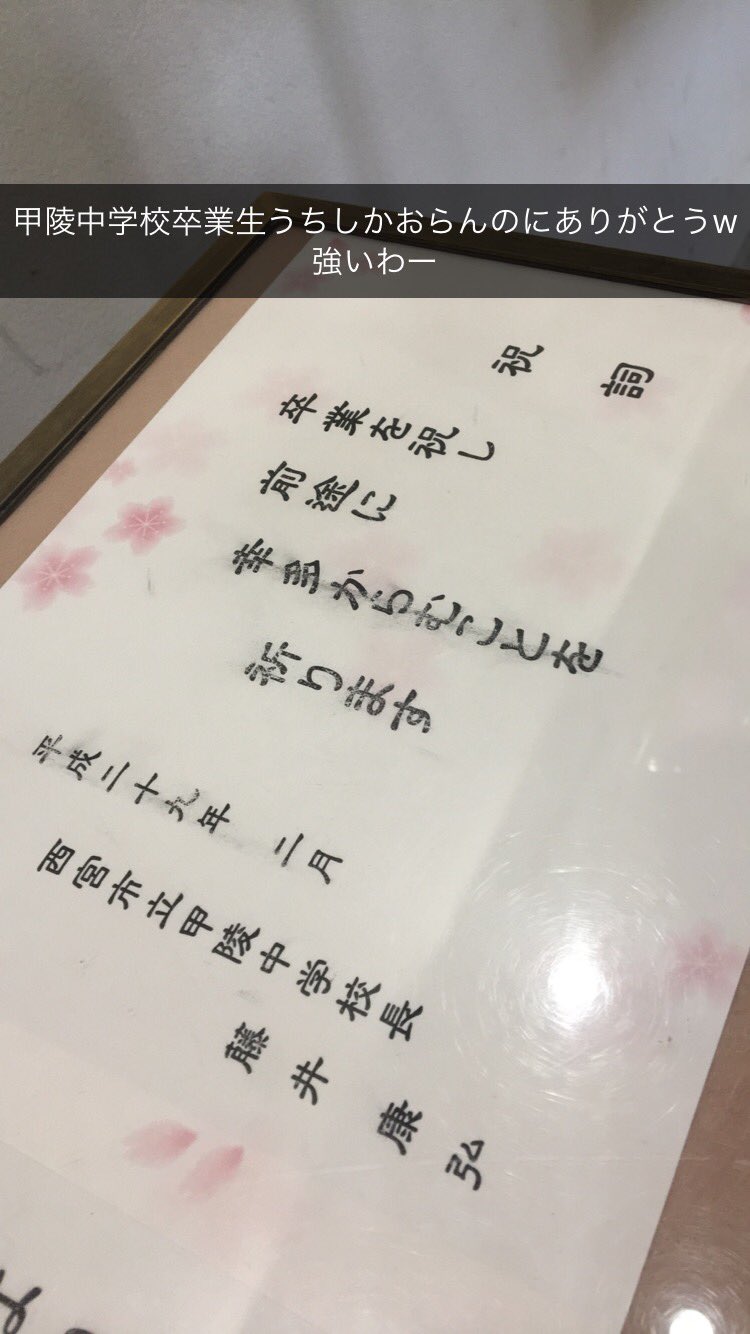 甲陵中学校卒業生うちしかおらんのにありがとうw
強いわー
祝詞
卒業を祝し
前途に
幸多からむことを
祈ります
平成二十九年 二月
西宮市立甲陵中学校長
藤井康弘